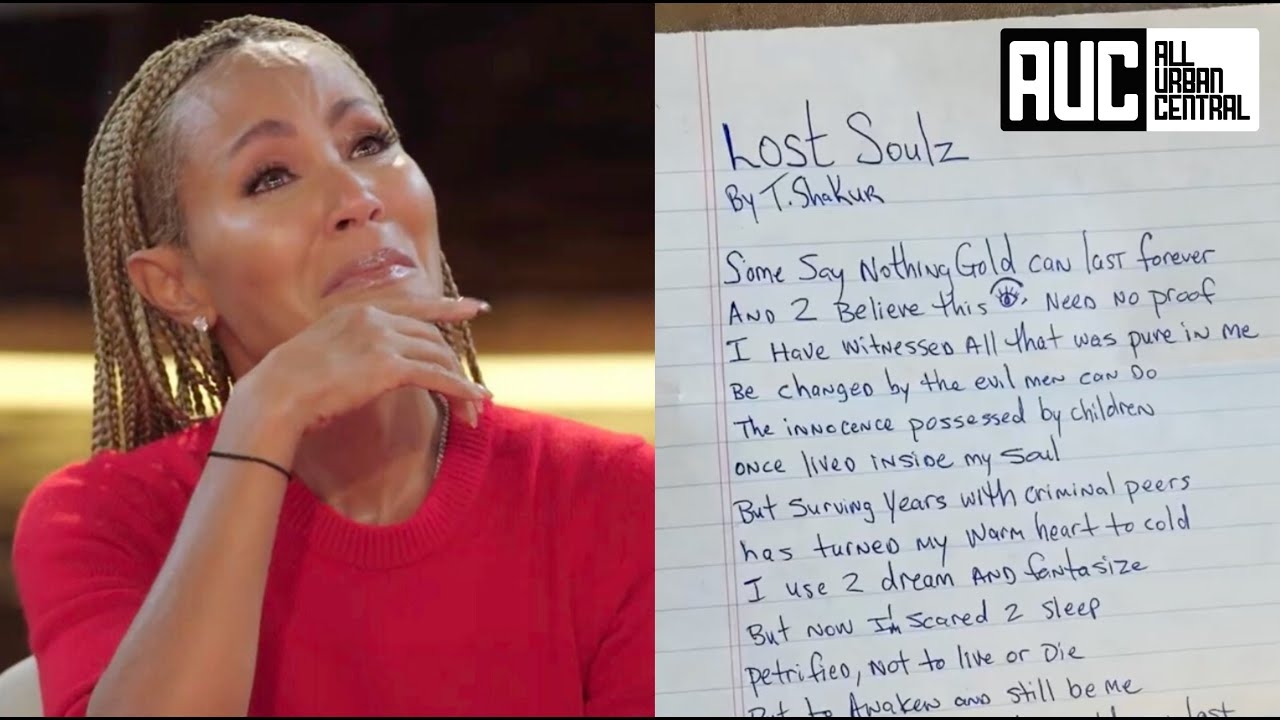 AUC ALL
URBAN
CENTRAL
Lost Soulz
By T. Shakur
Some Say Nothing Gold can last forever
AND 2 Believe this, Need No proof
I Have witnessed All that was pure in me
Be changed by the evil men can Do
The innocence possessed by children
once lived inside my soul
But Surving years with criminal peers
has turned my warm heart to cold
I use 2 dream AND fantasize
But now I'm scared 2 sleep
petrified, Not to live or Die
But to Awaken and still be me
last